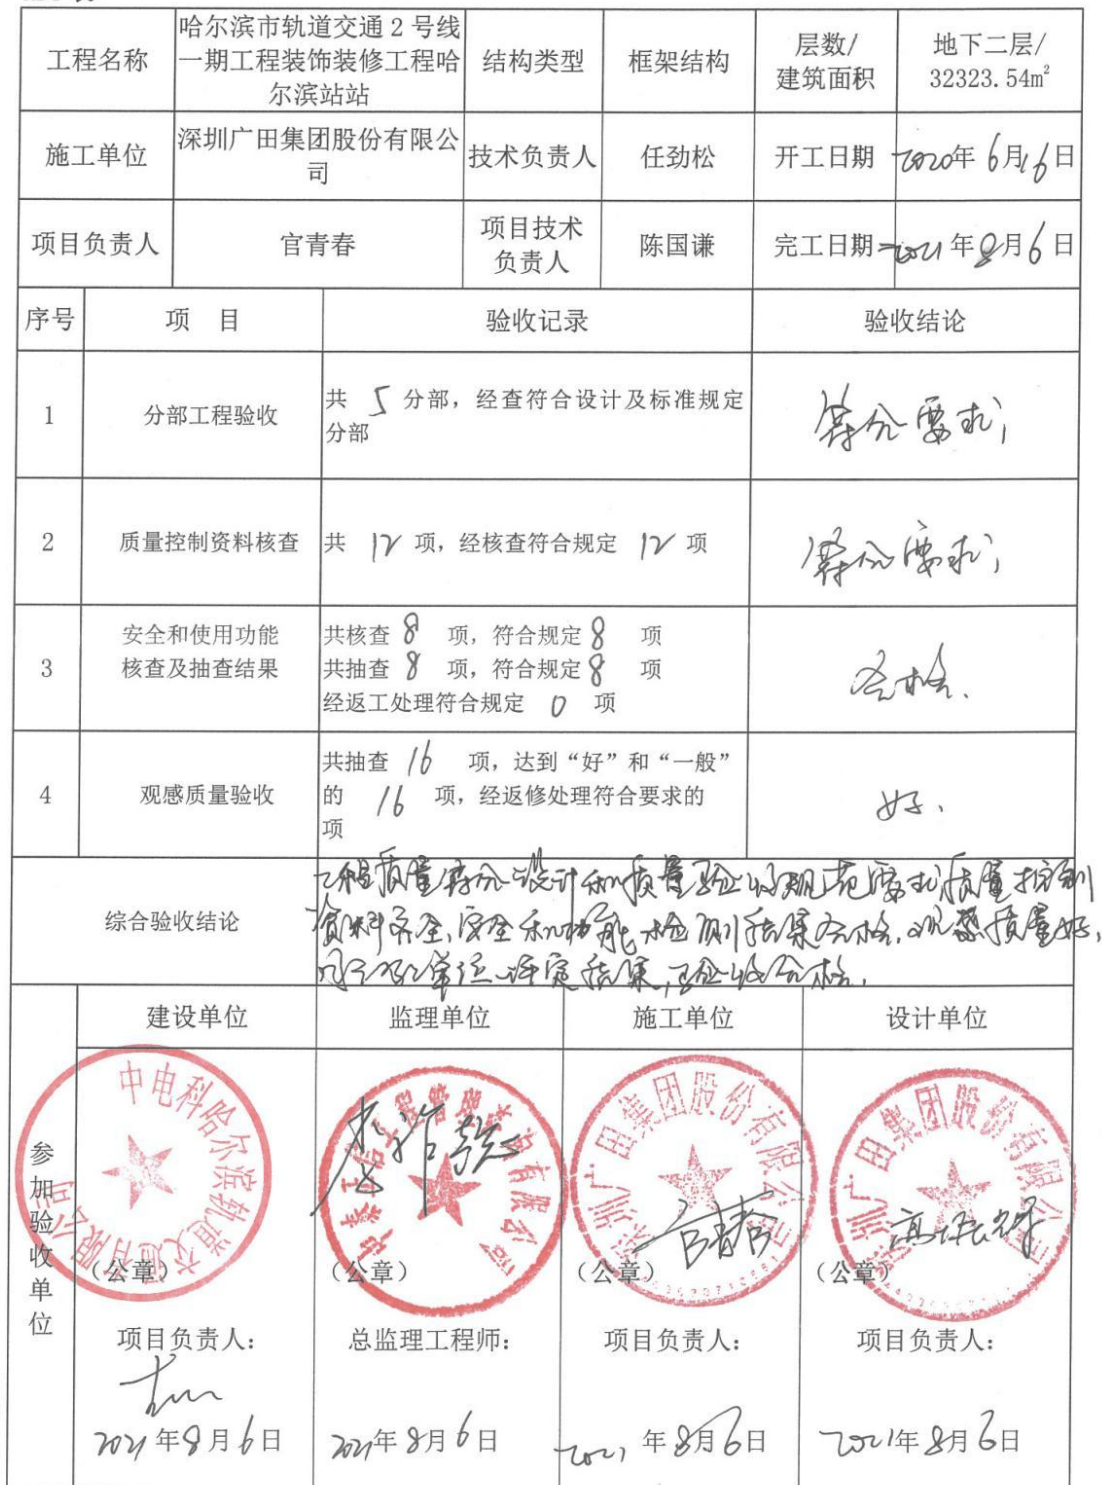 工程名称
哈尔滨市轨道交通2号线
一期工程装饰装修工程哈
尔滨站站
结构类型
框架结构
层数/
建筑面积
地下二层/
32323.54m²
施工单位
深圳广田集团股份有限公
司
技术负责人
任劲松
开工日期
2020年6月16日
项目负责人
官青春
项目技术
负责人
陈国谦
完工日期
2021年8月6日
序号
项 目
验收记录
验收结论
1
分部工程验收
共 5 分部，经查符合设计及标准规定
分部
符合要求;
2
质量控制资料核查
共 12 项，经核查符合规定 12 项
符合要求;
3
安全和使用功能
核查及抽查结果
共核查 8 项，符合规定 8 项
共抽查 8 项，符合规定 8 项
经返工处理符合规定 0 项
合格.
4
观感质量验收
共抽查 16 项，达到“好”和“一般”
的 16 项，经返修处理符合要求的
项
好.
综合验收结论
工程质量符合设计和质量验收规范要求,质量控制
资料齐全,安全和功能检测结果合格,观感质量好,
评定结果,验收合格.
参加验收单位
建设单位
监理单位
施工单位
设计单位
中电科哈尔滨轨道交通有限公司
工程管理 有限公司
深圳广田集团股份有限公司
深圳广田集团股份有限公司
官青春
（公章）
（公章）
（公章）
（公章）
项目负责人：
总监理工程师：
项目负责人：
项目负责人：
2021年8月6日
2021年8月6日
2021年8月6日
2021年8月6日